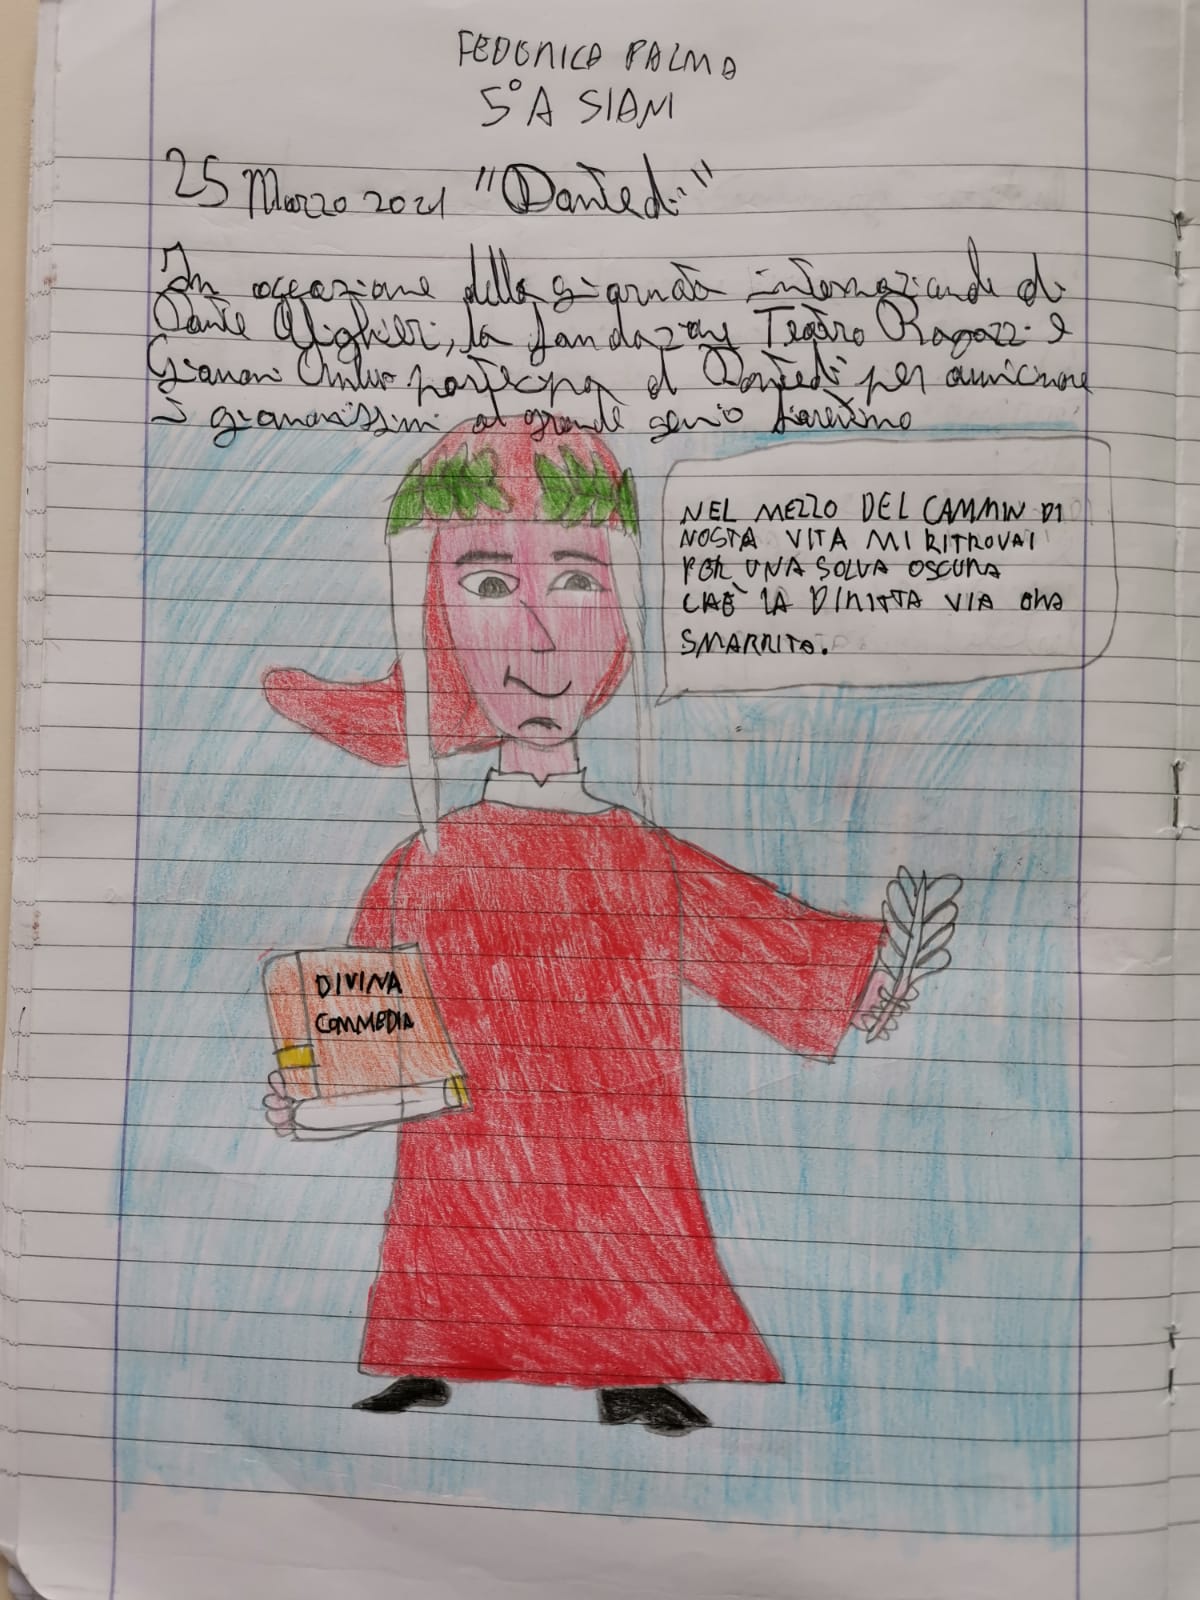 FEDERICA PALMA
5°A SIANI
25 Marzo 2021 "Dantedì"
In occazione della giornata internazionale di
Dante Alighieri, la fondazione Teatro Ragazzi e
Giovani Onlus partecipa al Dantedì per avvicinare
i giovanissimi al grande genio fiorentino
NEL MEZZO DEL CAMMIN DI
NOSTA VITA MI RITROVAI
PER UNA SELVA OSCURA
CHÈ LA DIRITTA VIA ERA
SMARRITA.
DIVINA
COMMEDIA